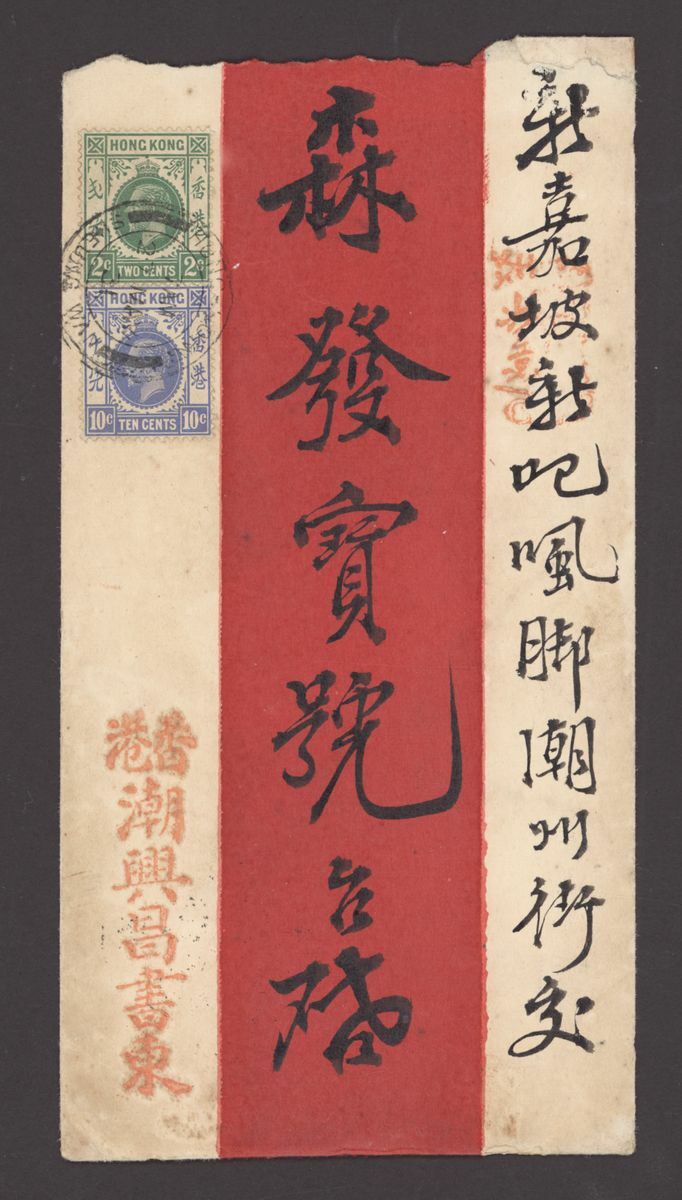 新嘉坡新吧虱脚潮州街交
森發寶號台啓
香港
潮興昌書柬
HONG KONG
香港
2c TWO CENTS 2c
HONG KONG
香港
10c TEN CENTS 10c